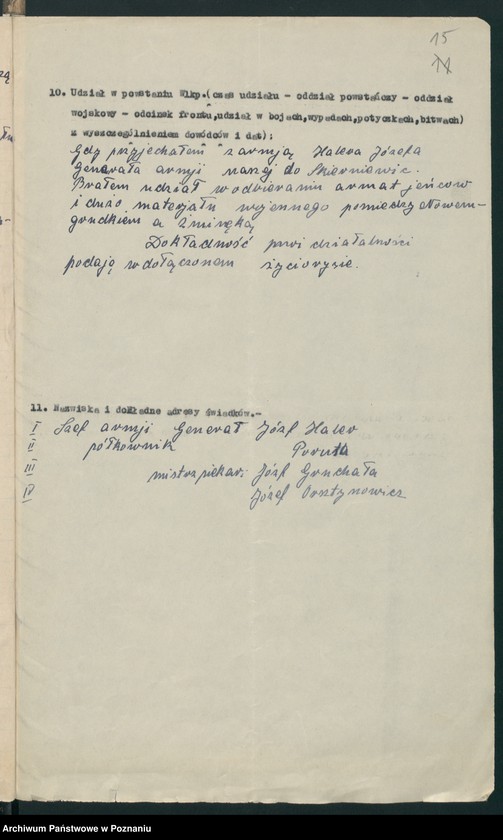 15
14
10. Udział w powstaniu Wlkp.(czas udziału - oddział powstańczy - oddział
wojskowy - odcinek frontu,udział w bojach,wypadach,potyczkach,bitwach)
z wyszczególnieniem dowódców i dat);
Gdy przyjechałem z armją Halera Józefa
Generała armji naszej do Skierniewic.
Brałem udział w odbieraniu armat jeńców
i dużo materjału wojennego pomiędzy Nowem-
grudkiem a
Dokładność działalności
podaję w dołączonem życiorysie.
11. Nazwiska i dokładne adresy świadków.-
I Szef armji Generał Józf Haler
II półkownik Poruta
III mistrz piekar: Józf Gruchała
IV Józef Orsztynowicz
Archiwum Państwowe w Poznaniu